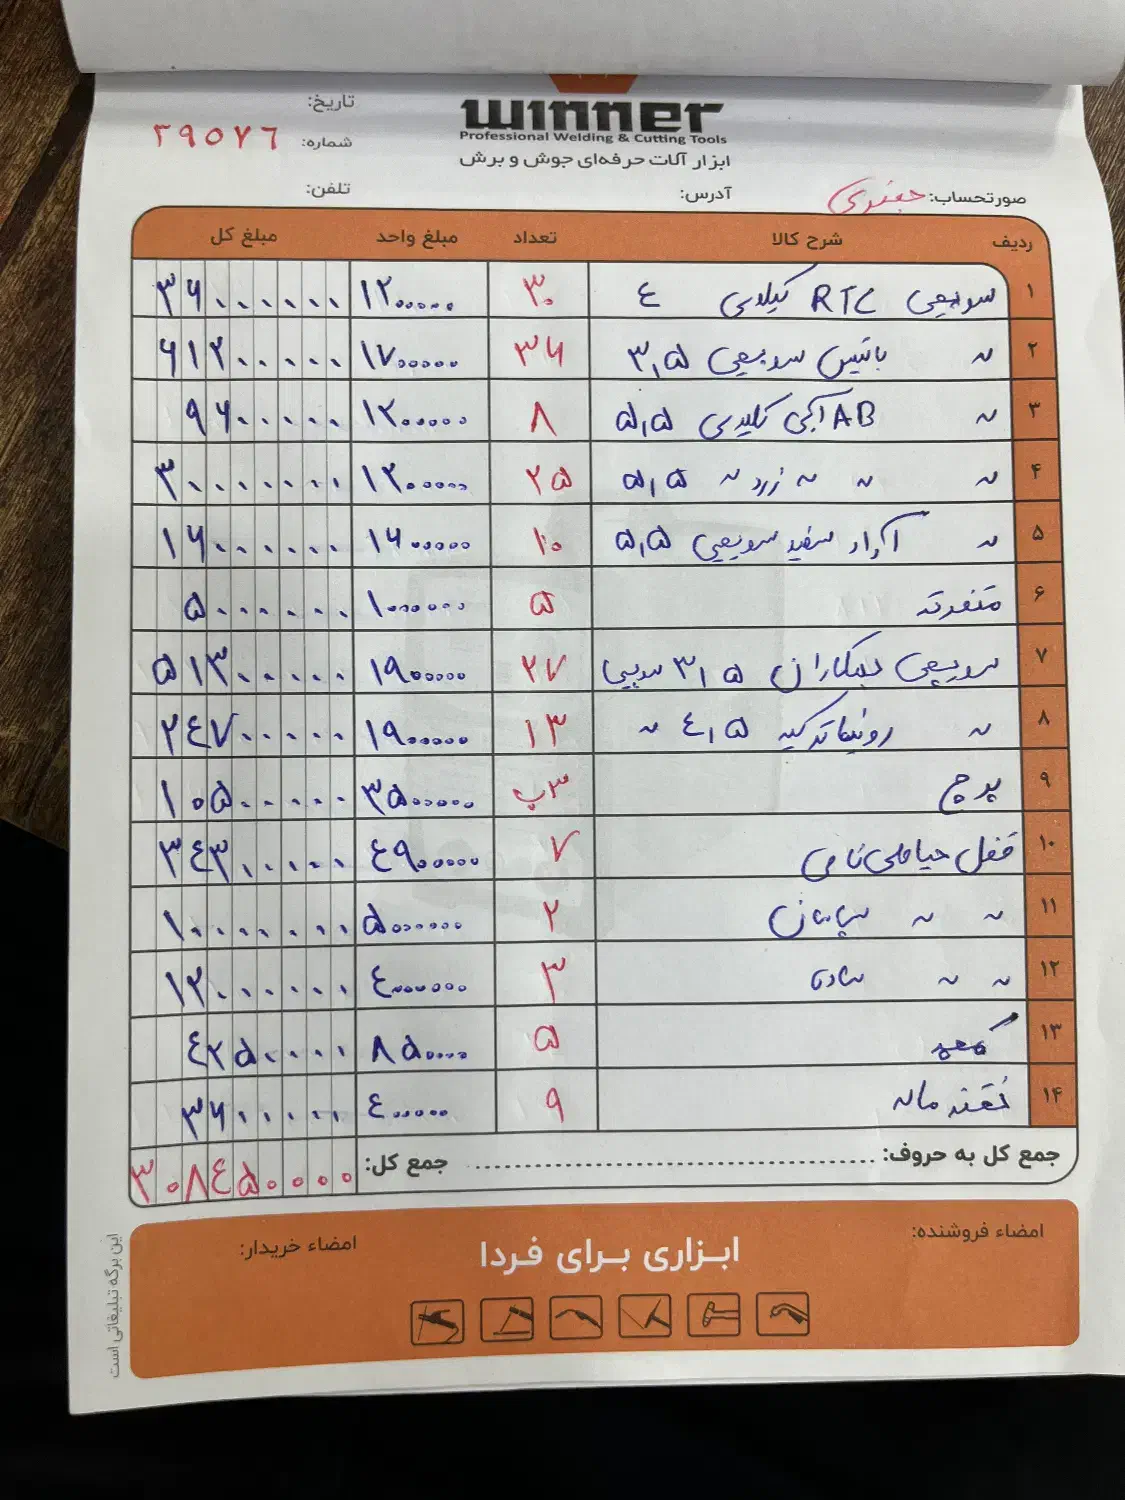 winner
Professional Welding & Cutting Tools
ابزار آلات حرفه‌ای جوش و برش
تاریخ:
شماره: ۲۹۵۷۶
صورتحساب: جعفری آدرس: تلفن:
ردیف شرح کالا تعداد مبلغ واحد مبلغ کل
۱ سویچی RTC کیلدی ٤ ۳۰ ۱۲۰۰۰۰۰ ۳۶۰۰۰۰۰۰
۲ " باتیس سویچی ۳,۵ ۳۶ ۱۷۰۰۰۰۰ ۶۱۲۰۰۰۰۰
۳ " AB آجی کلیدی ۵,۵ ۸ ۱۲۰۰۰۰۰ ۹۶۰۰۰۰۰
۴ " " " زرد " ۵,۵ ۲۵ ۱۲۰۰۰۰۰ ۳۰۰۰۰۰۰۰
۵ " آراد سفید سویچی ۵,۵ ۱۰ ۱۶۰۰۰۰۰ ۱۶۰۰۰۰۰۰
۶ متفرقه ۵ ۱۰۰۰۰۰۰ ۵۰۰۰۰۰۰
۷ سویچی ۳,۵ ۲۷ ۱۹۰۰۰۰۰ ۵۱۳۰۰۰۰۰
۸ " ٤,۵ " ۱۳ ۱۹۰۰۰۰۰ ۲٤۷۰۰۰۰۰
۹ پرچ ۳پ ۳۵۰۰۰۰۰ ۱۰۵۰۰۰۰۰
۱۰ قفل حیاطی نامی ۷ ٤۹۰۰۰۰۰ ۳٤۳۰۰۰۰۰
۱۱ " " ۲ ۵۰۰۰۰۰۰ ۱۰۰۰۰۰۰۰
۱۲ " " ۳ ٤۰۰۰۰۰۰ ۱۲۰۰۰۰۰۰
۱۳ ۵ ۸۵۰۰۰۰ ٤۲۵۰۰۰۰
۱۴ ۹ ٤۰۰۰۰۰ ۳۶۰۰۰۰۰
جمع کل به حروف: جمع کل: ۳۰۸٤۵۰۰۰۰
امضاء فروشنده: ابزاری برای فردا امضاء خریدار:
این برگه تبلیغاتی است